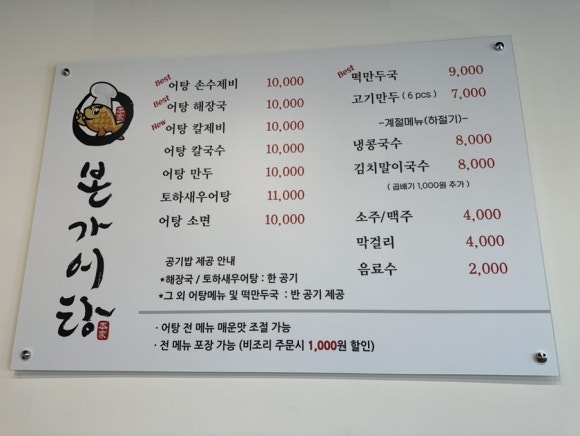 본가어탕
Best 어탕 손수제비 10,000
Best 어탕 해장국 10,000
New 어탕 칼제비 10,000
어탕 칼국수 10,000
어탕 만두 10,000
토하새우어탕 11,000
어탕 소면 10,000
공기밥 제공 안내
*해장국 / 토하새우어탕 : 한 공기
*그 외 어탕메뉴 및 떡만둣국 : 반 공기 제공
Best 떡만두국 9,000
고기만두 ( 6 pcs ) 7,000
-계절메뉴(하절기)-
냉콩국수 8,000
김치말이국수 8,000
( 곱배기 1,000원 추가 )
소주/맥주 4,000
막걸리 4,000
음료수 2,000
· 어탕 전 메뉴 매운맛 조절 가능
· 전 메뉴 포장 가능 (비조리 주문시 1,000원 할인)